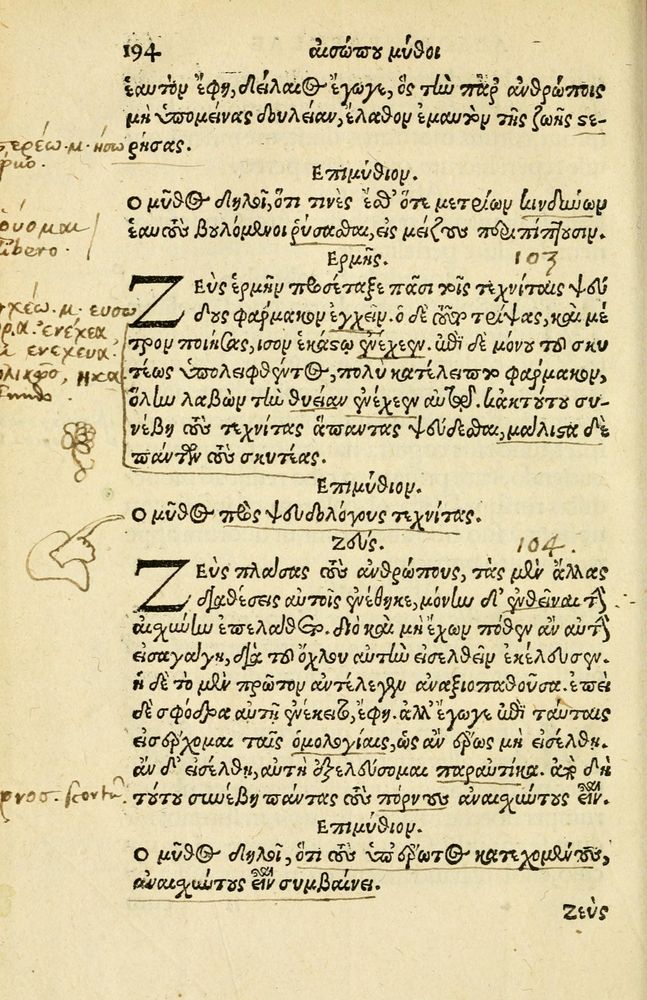 194 αἰσώπου μῦθοι
ἑαυτὸν ἔφη, δείλαιος ἔγωγε, ὃς τὴν παρ' ἀνθρώποις
μὴ ὑπομείνας δουλείαν, ἔλαθον ἐμαυτὸν τῆς ζωῆς στε-
ρήσας.
Επιμύθιον.
Ο μῦθος δηλοῖ, ὅτι τινὲς ἔσθ' ὅτε μετρίων κινδύνων
ἑαυτοὺς βουλόμενοι ῥύσασθαι, εἰς μείζους περιπίπτουσιν.
Ερμῆς. 103
ΖΕὺς ἑρμῆν προσέταξε πᾶσι τοῖς τεχνίταις ψεύ
δους φάρμακον ἐγχεῖν. ὁ δὲ τοῦτον τρίψας, καὶ μέ
τρον ποιήσας, ἴσον ἑκάστῳ ἐνέχεεν. ἐπεὶ δὲ μόνου τοῦ σκυ
τέως ὑπολειφθέντος, πολὺ κατέλειπτο φάρμακον,
ὅλην λαβὼν τὴν θυείαν ἐνέχεεν αὐτῷ. κἀκτούτου συ-
νέβη τοὺς τεχνίτας ἅπαντας ψεύδεσθαι, μάλιστα δὲ
πάντων τοὺς σκυτέας.
Επιμύθιον.
Ο μῦθος πρὸς ψευδολόγους τεχνίτας.
Ζεύς. 104.
ΖΕὺς πλάσας τοὺς ἀνθρώπους, τὰς μὲν ἄλλας
διαθέσεις αὐτοῖς ἐνέθηκε, μόνην δ' ἐνθεῖναι τὴν
αἰσχύνην ἐπελάθετο. διὸ καὶ μὴ ἔχων πόθεν ἂν αὐτὴν
εἰσαγάγῃ, διὰ τοῦ ὄχλου αὐτὴν εἰσελθεῖν ἐκέλευσεν.
ἡ δὲ τὸ μὲν πρῶτον ἀντέλεγεν ἀναξιοπαθοῦσα. ἐπεὶ
δὲ σφόδρα αὐτῇ ἐνέκειτο, ἔφη. ἀλλ' ἔγωγε ἐπὶ ταύταις
εἰσέρχομαι ταῖς ὁμολογίαις, ὡς ἂν ἔρως μὴ εἰσέλθῃ.
ἂν δ' εἰσέλθῃ, αὐτὴ ἐξελεύσομαι παραυτίκα. ἀπὸ δὴ
τούτου συνέβη πάντας τοὺς πόρνους ἀναισχύντους εἶναι.
Επιμύθιον.
Ο μῦθος δηλοῖ, ὅτι τοὺς ὑπ' ἔρωτος κατεχομένους,
ἀναισχύντους εἶναι συμβαίνει.
Ζεὺς
libero.
ἐνέχεα,
ἐνέχευα.